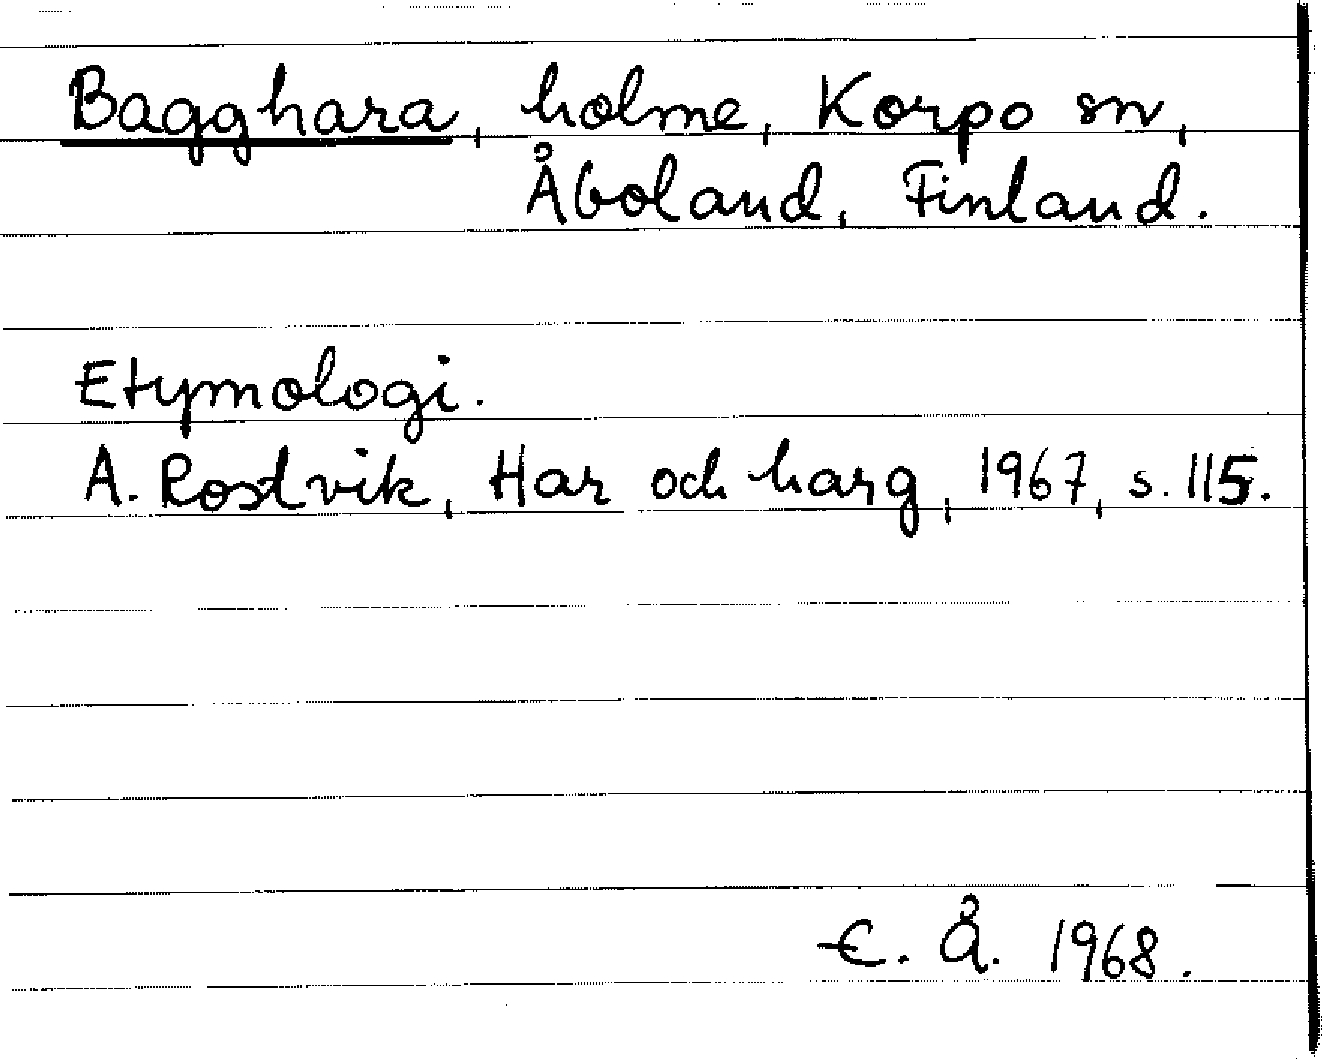 Bagghara, holme, Korpo sn,
Åboland, Finland.
Etymologi.
A. Rostvik, Har och harg, 1967, s. 115.
E. Å. 1968.